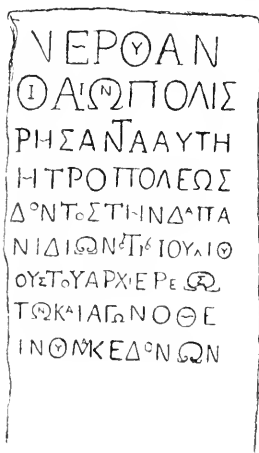 ΝΕΡΟΥΑΝ
ΟΙΑΙΩΝΠΟΛΙΣ
ΡΗΣΑΝΤΑΑΥΤΗ
ΗΤΡΟΠΟΛΕΩΣ
ΔΟΝΤΟΣΤΗΝΔΑΠΑ
ΝΙΔΙΩΝΤΙΒΙΟΥΛΙΟΥ
ΟΥΣΤΟΥΑΡΧΙΕΡΕΩΣ
ΤΩΝΚΑΙΑΓΩΝΟΘΕ
ΙΝΟΥΜΑΚΕΔΟΝΩΝ